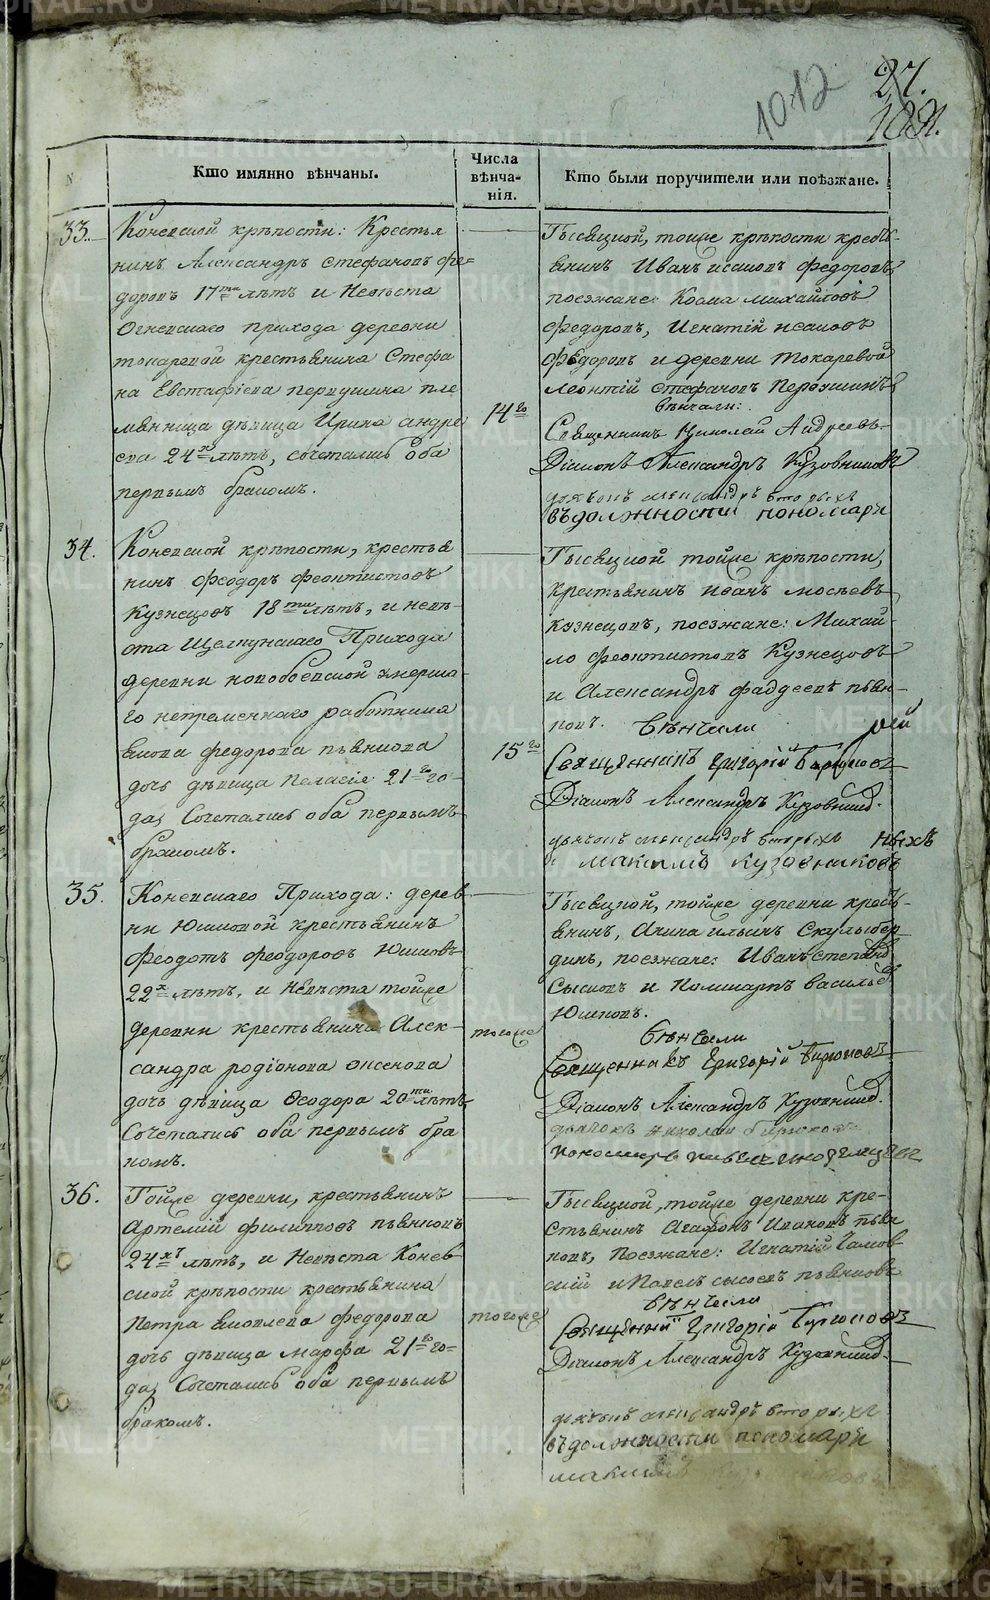 1012
27.
№
Кто имянно вѣнчаны.
Числа вѣнча-
нія.
Кто были поручители или поѣзжане.
33.
Коневской крѣпости: Крестья
нинъ Александръ Стефановъ Фе-
доровъ 17ти лѣтъ и Невѣста
Огневскаго прихода деревни
токаревой крестьянина Стефа
на Евстафіева первушина пле
мянница дѣвица Ирина андре
ева 24х лѣтъ, сочетались оба
первымъ бракомъ.
14го
Тысяцкой, тойже крѣпости кресть-
янинъ Иванъ исаковъ федоровъ,
поезжане: Козма михайловъ
федоровъ, Игнатій исаковъ
федоровъ и деревни Токаревой
Леонтій стефановъ Первушинъ
вѣнчали:
Священникъ Николай Андреевъ
Діаконъ Александръ Кузовниковъ
дьячокъ александръ вторыхъ
въ должности пономаря
34.
Коневской крѣпости, крестья
нинъ Феодоръ феоктистовъ
Кузнецовъ 18ти лѣтъ, и невѣ-
ста Щелкунскаго Прихода
деревни новобоевской умерша-
го непременнаго работника
Якова федорова пьянкова
дочь дѣвица Пелагія 21го го-
да, Сочетались оба первымъ
бракомъ.
15го
Тысяцкой тойже крѣпости,
Крестьянинъ иванъ мосѣевъ
кузнецовъ, поезжане: Михай-
ло феоктистовъ Кузнецовъ
и Александръ фаддеевъ пьян-
ковъ. вѣнчали
Священникъ Григорій Бирюковъ
Діаконъ Александръ Кузовник.
дьячокъ александръ вторыхъ
максимъ кузовниковъ
35.
Коневскаго Прихода: дерев-
ни Юшковой крестьянинъ
Феодотъ феодоровъ Юшковъ
22х лѣтъ, и Невѣста тойже
деревни крестьянина Алек-
сандра родіонова аксенова
дочь дѣвица Феодора 20ти лѣтъ
Сочетались оба первымъ бра
комъ.
тогоже
Тысяцкой, тойже деревни кресть-
янинъ, Акила ильинъ
поезжане: Иванъ Степановъ
Сысковъ и василей
Юшковъ.
вѣнчали
Священникъ Григорій Бирюковъ
Діаконъ Александръ Кузовник.
дьячокъ николай бирюковъ
пономарь
36.
Тойже деревни, крестьянинъ
Артемій филиповъ пьянковъ
24хъ лѣтъ, и Невѣста Конев-
ской крѣпости крестьянина
Петра яковлева федорова
дочь дѣвица марфа 21го го-
да, Сочетались оба первымъ
бракомъ.
тогоже
Тысяцкой, тойже деревни кре-
стьянинъ Агафонъ Ивановъ пьян
ковъ, Поезжане: Игнатій
и Павелъ сысоевъ пьянковъ
вѣнчали
Священникъ Григорій Бирюковъ
Діаконъ Александръ Кузовник.
дьячокъ александръ вторыхъ
въ должности пономаря
максимъ
METRIKI.GASO-URAL.RU